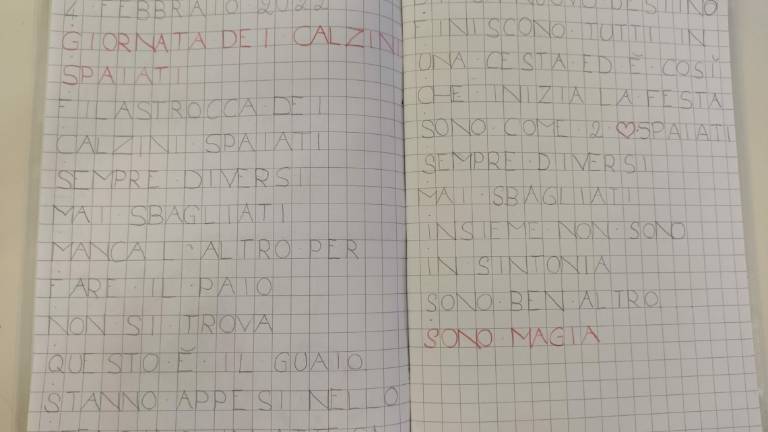 4 FEBBRAIO 2022
GIORNATA DEI CALZINI
SPAIATI
FILASTROCCA DEI
CALZINI SPAIATI
SEMPRE DIVERSI
MAI SBAGLIATI
MANCA L'ALTRO PER
FARE IL PAIO
NON SI TROVA
QUESTO È IL GUAIO
STANNO APPESI NELLO
DESTINO
FINISCONO TUTTI IN
UNA CESTA ED È COSÌ
CHE INIZIA LA FESTA
SONO COME 2 ♡ SPAIATI
SEMPRE DIVERSI
MAI SBAGLIATI
INSIEME NON SONO
IN SINTONIA
SONO BEN ALTRO
SONO MAGIA